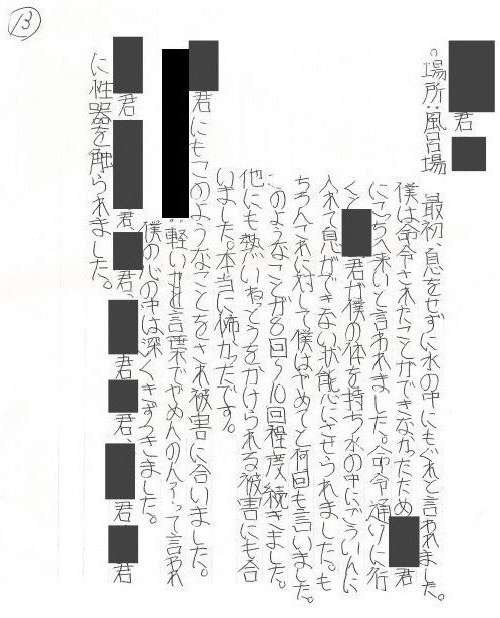 13
君
。場所:風呂場
最初、息をせずに水の中にもぐれと言われました。
僕は命令されたことができなかったため 君
にこっちへ来いと言われました。命令通りに行
くと 君が僕の体を持ち水の中にごういんに
入れて息ができない状態にさせられました。も
ちろんそれに対して僕はやめてと何回も言いました。
このようなことが8回〜10回程度続きました。
他にも熱いねっとうをかけられる被害にも合
いました。本当に怖かったです。
君にもこのようなことをされ被害に合いました。
:軽い 言葉で って言われ
僕の心の中は深くきずつきました。
君、 君、 君、 君、 君、 君、 君
に性器を触られました。